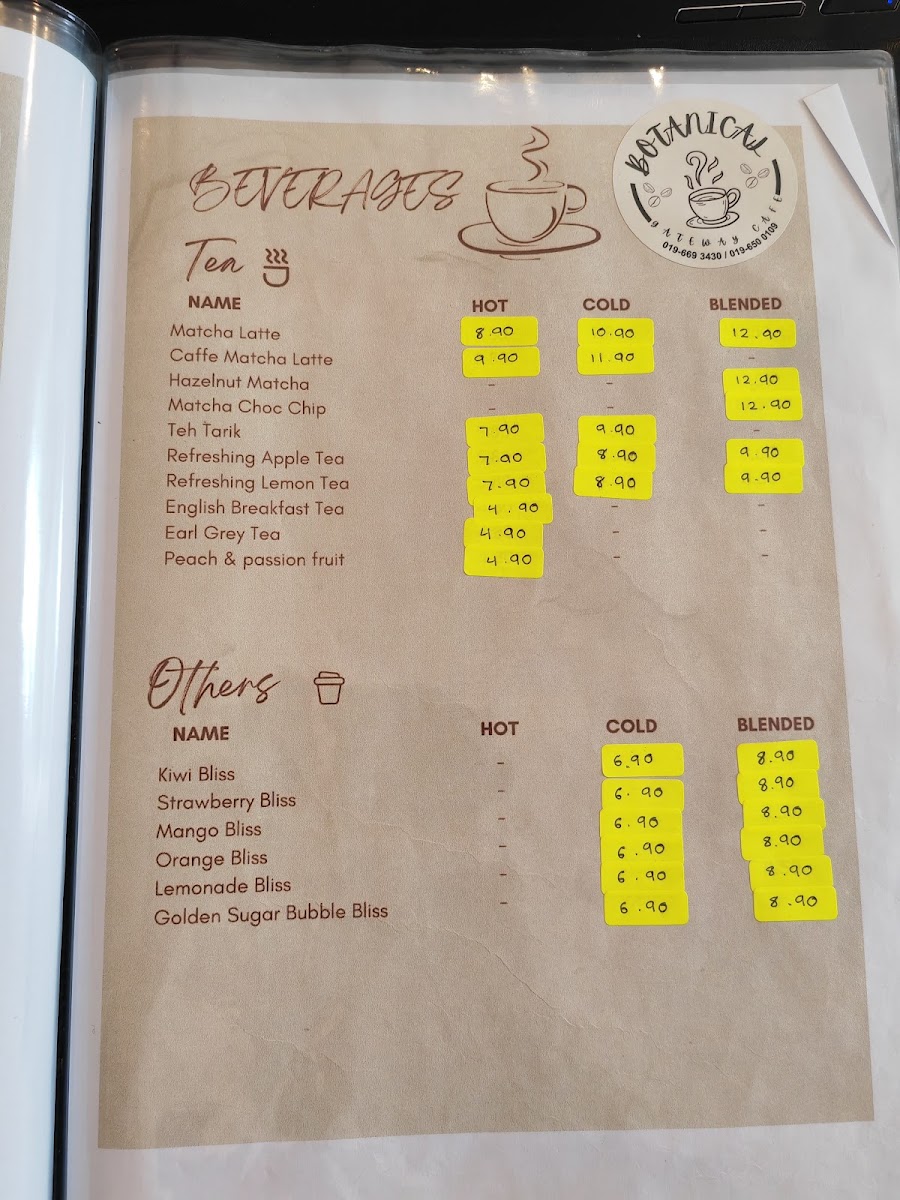 BOTANICAL
GATEWAY CAFE
019-669 3430 / 019-650 0109
BEVERAGES
Tea
NAME HOT COLD BLENDED
Matcha Latte 8.90 10.90 12.90
Caffe Matcha Latte 9.90 11.90 -
Hazelnut Matcha - - 12.90
Matcha Choc Chip - - 12.90
Teh Tarik 7.90 9.90 -
Refreshing Apple Tea 7.90 8.90 9.90
Refreshing Lemon Tea 7.90 8.90 9.90
English Breakfast Tea 4.90 - -
Earl Grey Tea 4.90 - -
Peach & passion fruit 4.90 - -
Others
NAME HOT COLD BLENDED
Kiwi Bliss - 6.90 8.90
Strawberry Bliss - 6.90 8.90
Mango Bliss - 6.90 8.90
Orange Bliss - 6.90 8.90
Lemonade Bliss - 6.90 8.90
Golden Sugar Bubble Bliss - 6.90 8.90